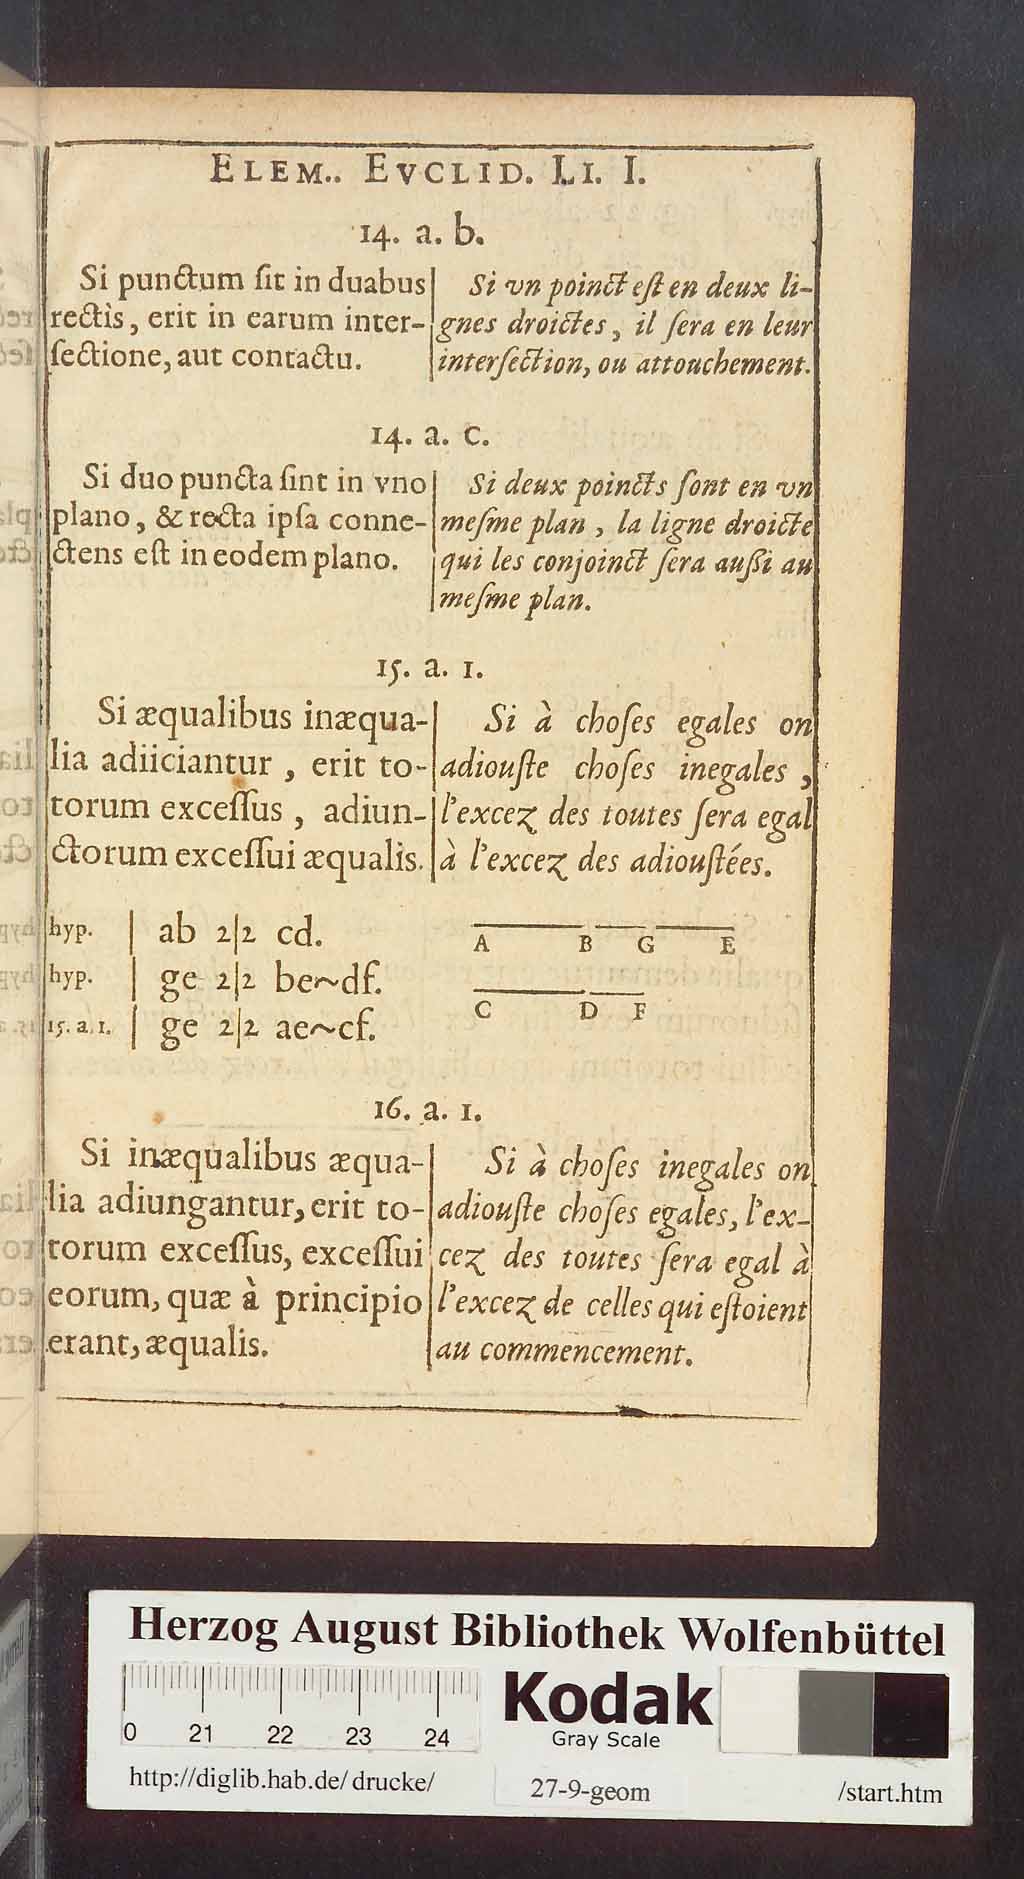 ELEM.. EVCLID. LI. I.
14. a. b.
Si punctum ſit in duabus
rectis, erit in earum inter-
ſectione, aut contactu.
Si vn poinct eſt en deux li-
gnes droictes, il ſera en leur
interſection, ou attouchement.
14. a. c.
Si duo puncta ſint in vno
plano, & recta ipſa conne-
ctens eſt in eodem plano.
Si deux poincts ſont en vn
meſme plan, la ligne droicte
qui les conjoinct ſera auſſi au
meſme plan.
15. a. 1.
Si æqualibus inæqua-
lia adiiciantur, erit to-
torum exceſſus, adiun-
ctorum exceſſui æqualis.
Si à choſes egales on
adiouſte choſes inegales,
l'excez des toutes ſera egal
à l'excez des adiouſtées.
hyp. | ab 2|2 cd.
hyp. | ge 2|2 be~df.
15. a. 1. | ge 2|2 ae~cf.
A B G E
C D F
16. a. 1.
Si inæqualibus æqua-
lia adiungantur, erit to-
torum exceſſus, exceſſui
eorum, quæ à principio
erant, æqualis.
Si à choſes inegales on
adiouſte choſes egales, l'ex-
cez des toutes ſera egal à
l'excez de celles qui eſtoient
au commencement.
Herzog August Bibliothek Wolfenbüttel
0 21 22 23 24
Kodak
Gray Scale
http://diglib.hab.de/drucke/ 27-9-geom /start.htm